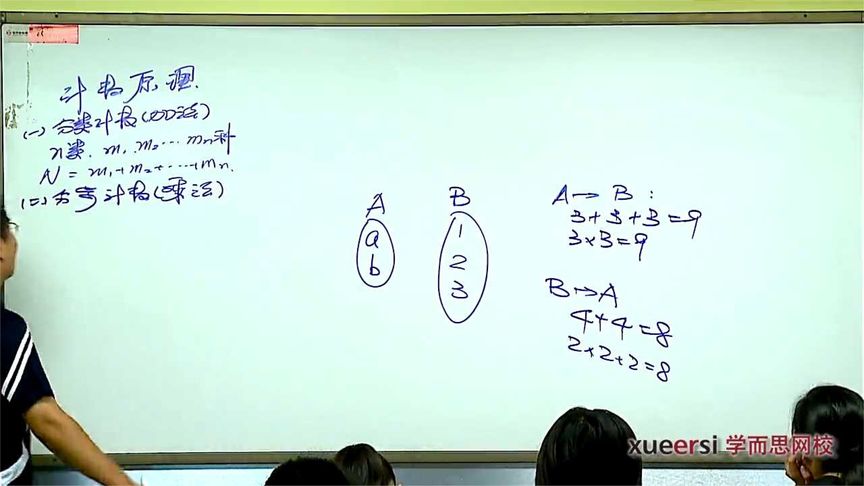 计数原理
(一)分类计数(加法)
n类. m₁.m₂...mₙ种
N = m₁+m₂+...+mₙ.
(二)分步计数(乘法)
A
a
b
B
1
2
3
A→B:
3+3+3=9
3×3=9
B→A
4+4=8
2×2×2=8
xueersi 学而思网校